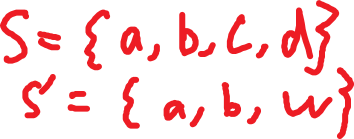 S = {a, b, c, d}
S' = {a, b, w}